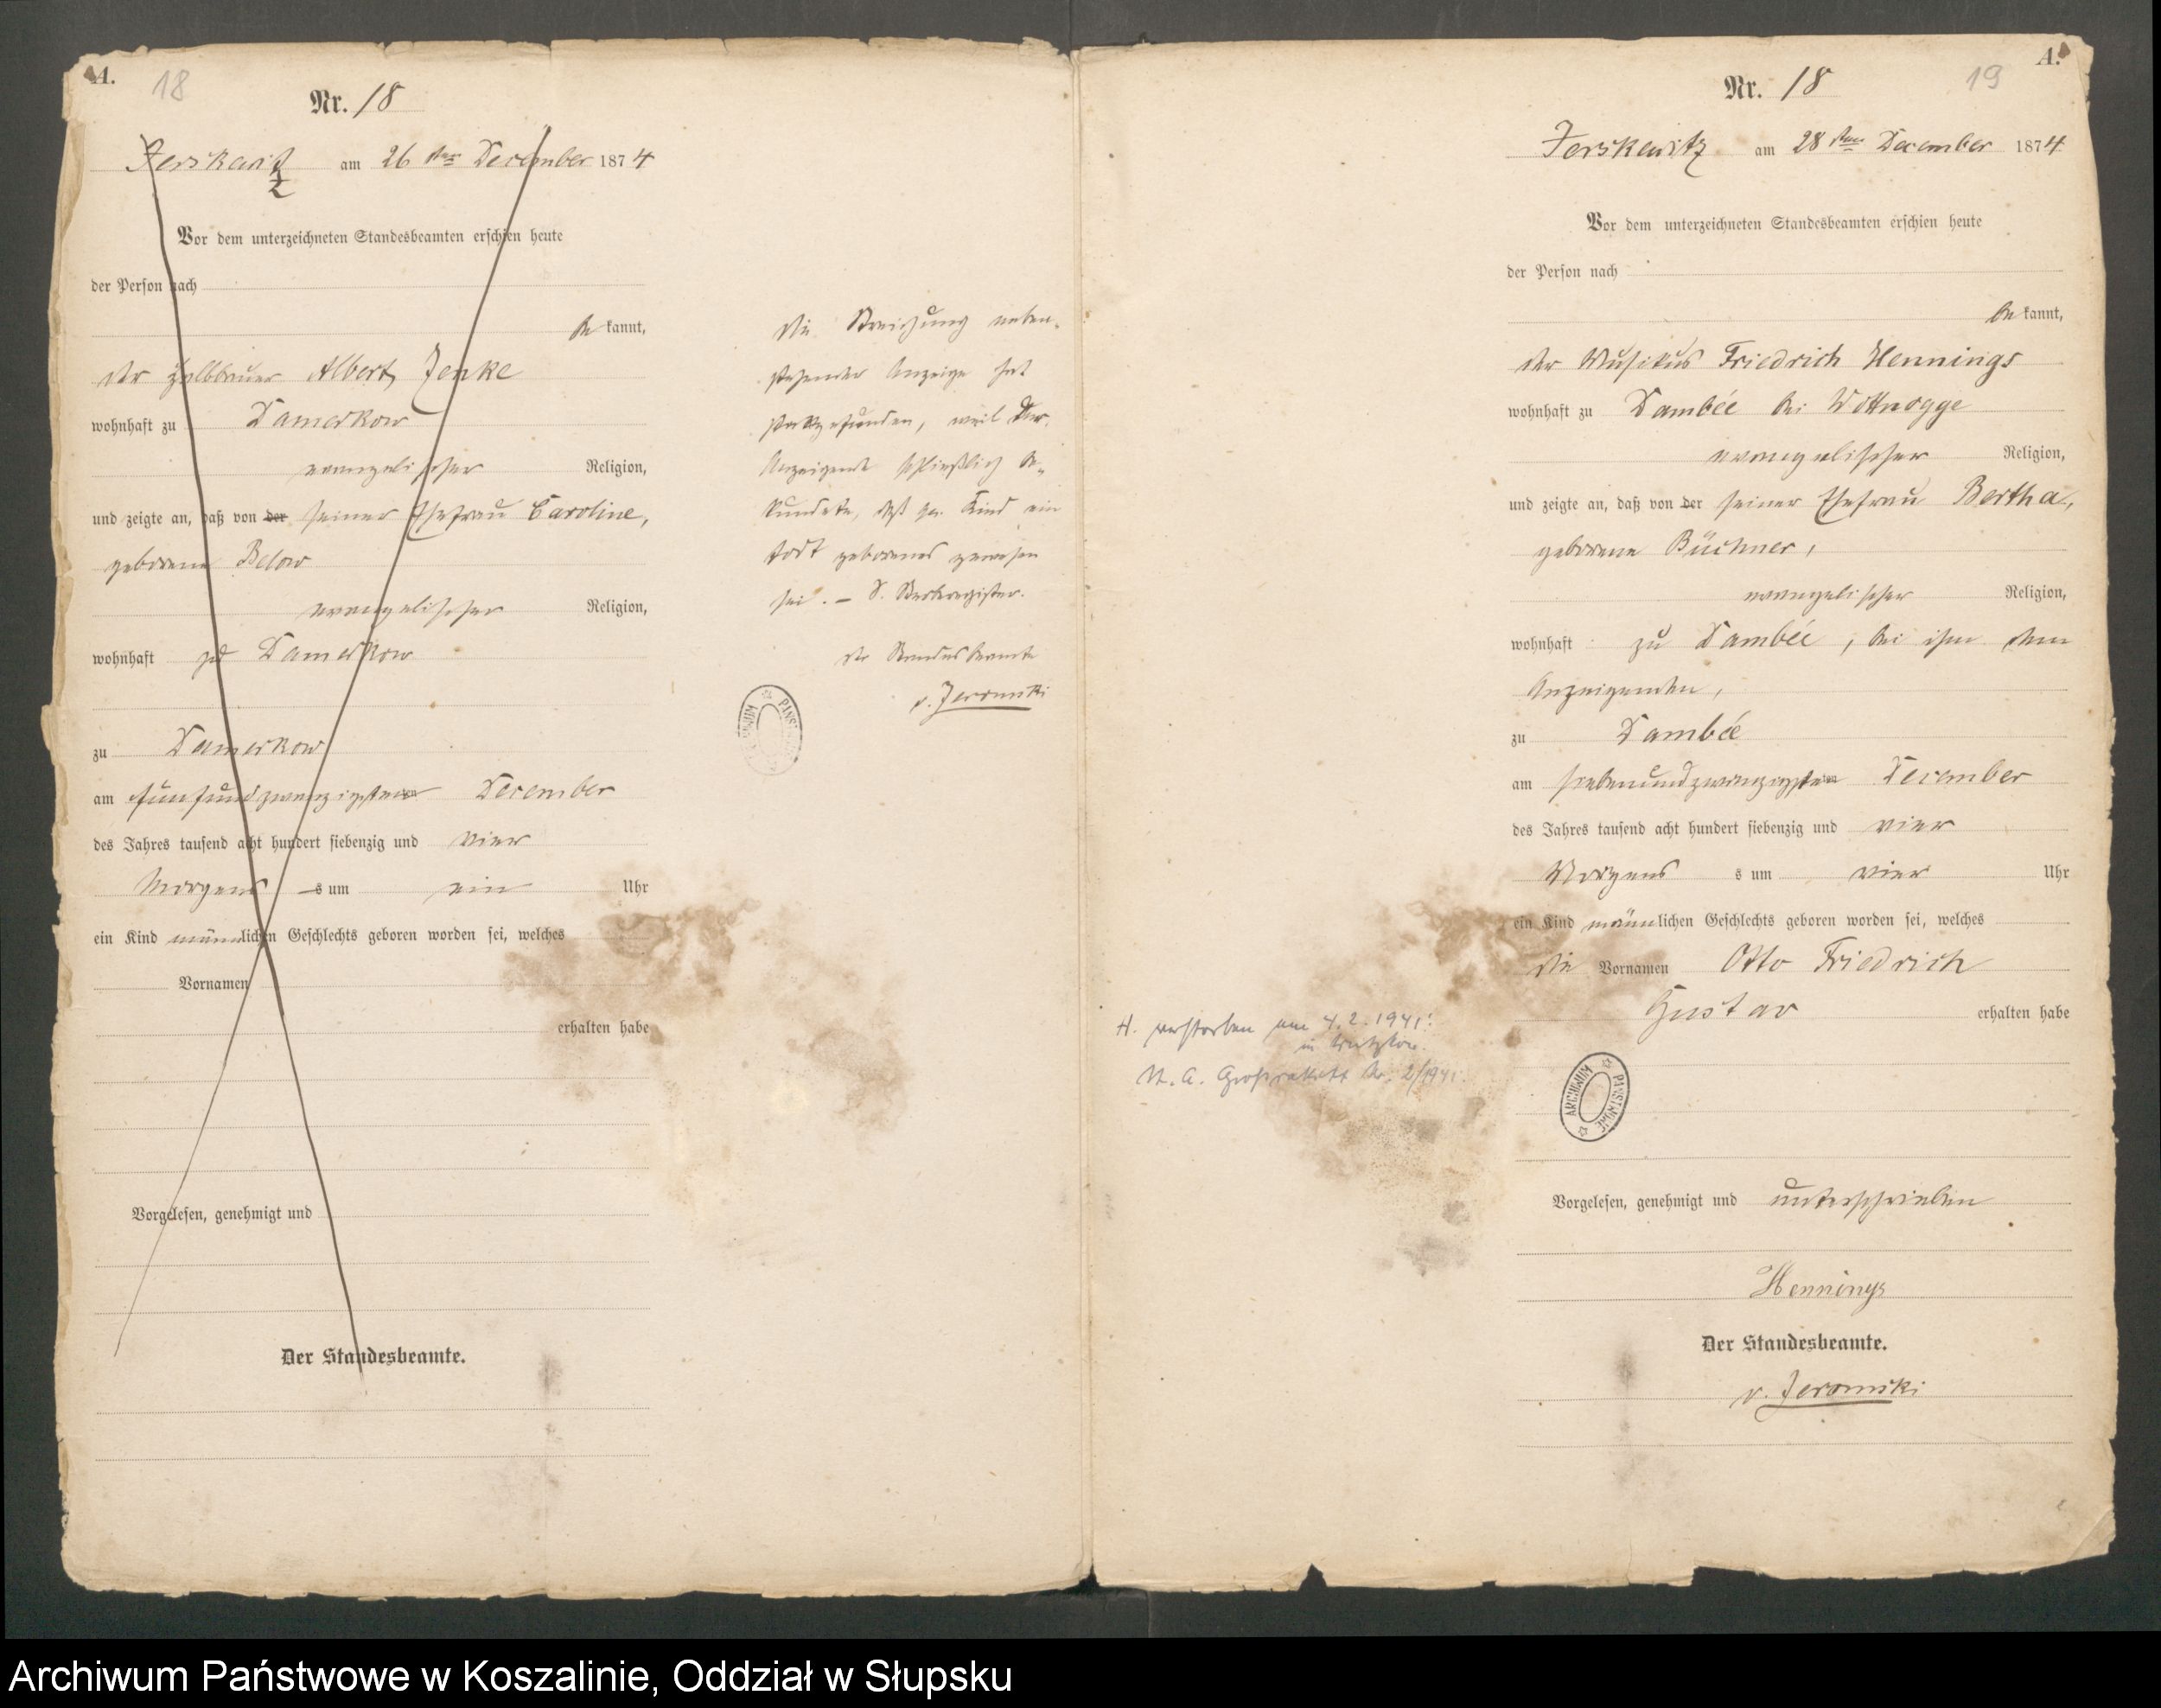 A.
18
Nr. 18
Jerskewitz am 26 ten December 1874
Vor dem unterzeichneten Standesbeamten erschien heute
der Person nach
be kannt,
der Halbbauer Albert Jenke
wohnhaft zu Damerkow
evangelischer Religion,
und zeigte an, daß von der seiner Ehefrau Caroline,
geborene Below
evangelischer Religion,
wohnhaft zu Damerkow
zu Damerkow
am fünfundzwanzigsten December
des Jahres tausend acht hundert siebenzig und vier
Morgens s um ein Uhr
ein Kind männlichen Geschlechts geboren worden sei, welches
Vornamen
erhalten habe
Vorgelesen, genehmigt und
Der Standesbeamte.
Die Streichung neben-
stehender Anzeige hat
stattgefunden, weil der
Anzeigende schließlich be-
kundete, daß das Kind ein
todt geborenes gewesen
sei. – S. Sterberegister.
Der Standesbeamte
v. Jeromski
ARCHIWUM PAŃSTWOWE
A.
19
Nr. 18
Jerskewitz am 28 ten December 1874
Vor dem unterzeichneten Standesbeamten erschien heute
der Person nach
be kannt,
der Musikus Friedrich Hennings
wohnhaft zu Dambée bei Wottnogge
evangelischer Religion,
und zeigte an, daß von der seiner Ehefrau Bertha,
geborene Büchner,
evangelischer Religion,
wohnhaft zu Dambée, bei ihm dem
Anzeigenden,
zu Dambée
am siebenundzwanzigsten December
des Jahres tausend acht hundert siebenzig und vier
Morgens s um vier Uhr
ein Kind männlichen Geschlechts geboren worden sei, welches
die Vornamen Otto Friedrich
Gustav erhalten habe
H. verstorben am 4.2.1941
in
St. A. Großrakitt Nr. 2/1941.
ARCHIWUM PAŃSTWOWE
Vorgelesen, genehmigt und unterschrieben
Hennings
Der Standesbeamte.
v. Jeromski
Archiwum Państwowe w Koszalinie, Oddział w Słupsku